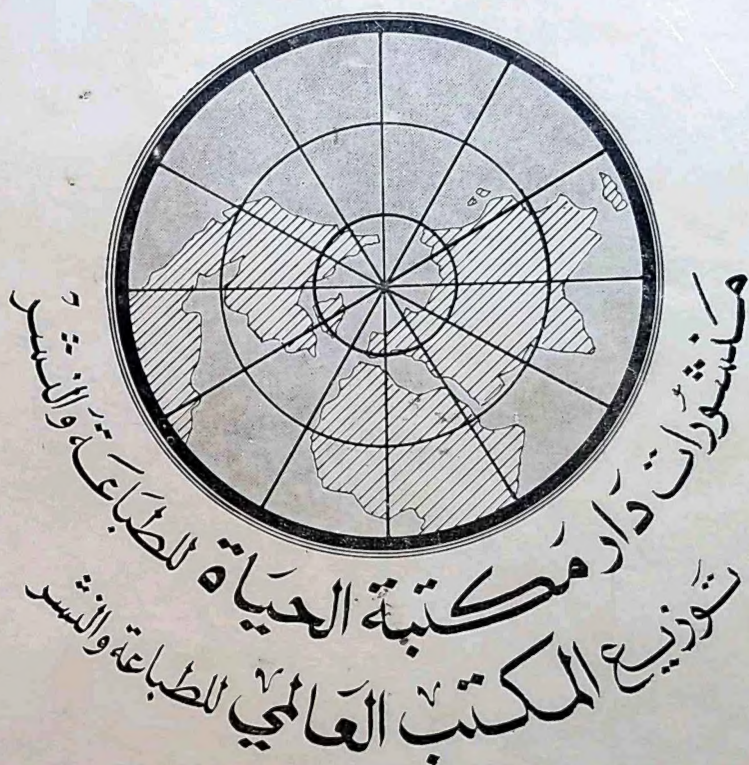 مَنشُورَات دَار مَكتبَة الحيَاة للطبَاعَة وَالنشرْ
تَوزيع المكتب العَالمي للطباعة والنشر